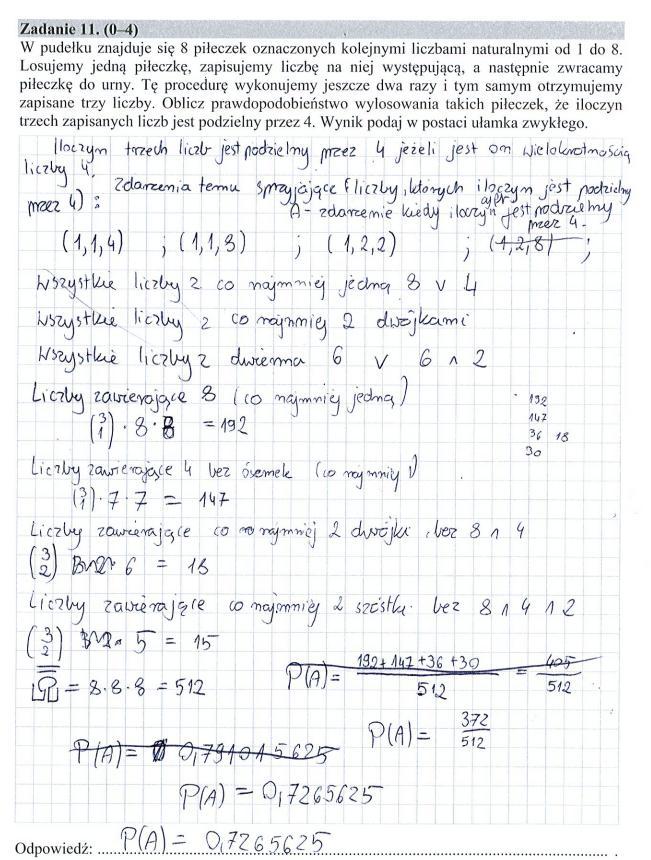 Zadanie 11. (0–4)
W pudełku znajduje się 8 piłeczek oznaczonych kolejnymi liczbami naturalnymi od 1 do 8.
Losujemy jedną piłeczkę, zapisujemy liczbę na niej występującą, a następnie zwracamy
piłeczkę do urny. Tę procedurę wykonujemy jeszcze dwa razy i tym samym otrzymujemy
zapisane trzy liczby. Oblicz prawdopodobieństwo wylosowania takich piłeczek, że iloczyn
trzech zapisanych liczb jest podzielny przez 4. Wynik podaj w postaci ułamka zwykłego.
Iloczyn trzech liczb jest podzielny przez 4 jeżeli jest on wielokrotnością
liczby 4.
Zdarzenia temu sprzyjające (liczby, których iloczyn jest podzielny
przez 4) :
A - zdarzenie kiedy iloczyn jest podzielny
przez 4.
(1,1,4) ; (1,1,8) ; (1,2,2) ; (1,2,8) ;
Wszystkie liczby z co najmniej jedną 8 v 4
Wszystkie liczby z co najmniej 2 dwójkami
Wszystkie liczby z dwiema 6 v 6 ∧ 2
Liczby zawierające 8 (co najmniej jedną)
(3 1) · 8 · 8 = 192
192
147
36 18
30
Liczby zawierające 4 bez ósemek (co najmniej 1)
(3 1) · 7 · 7 = 147
Liczby zawierające co najmniej 2 dwójki, bez 8 ∧ 4
(3 2) 6 = 18
Liczby zawierające co najmniej 2 szóstki bez 8 ∧ 4 ∧ 2
(3 2) 5 = 15
P(A) = 192+147+36+30 / 512 = 405 / 512
Ω = 8·8·8 = 512
P(A) = 372 / 512
P(A) = 0,791015625
P(A) = 0,7265625
Odpowiedź: P(A) = 0,7265625